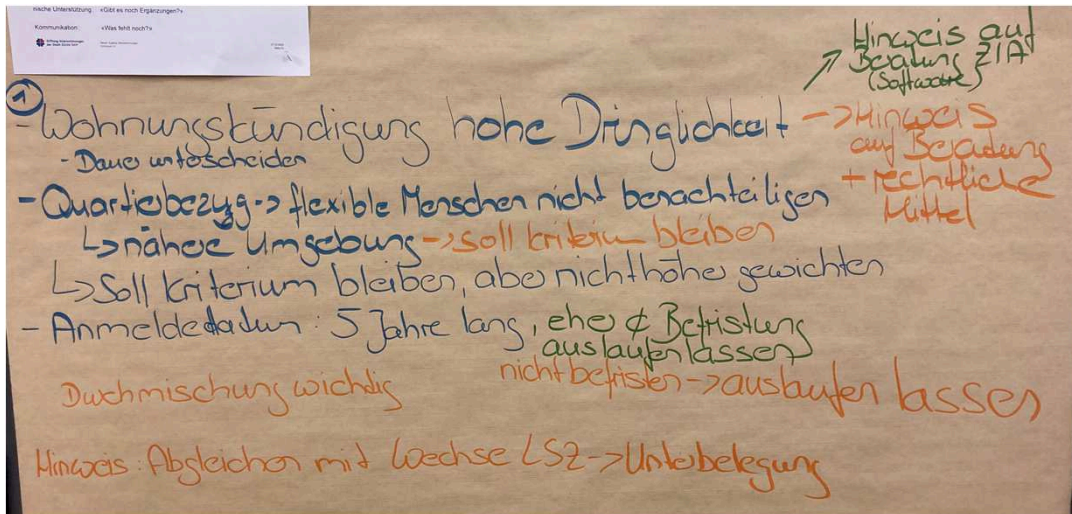 nische Unterstützung: «Gibt es noch Ergänzungen?»
Kommunikation: «Was fehlt noch?»
Hinweis auf
Beratung ZIA
(Software)
①
- Wohnungskündigung hohe Dringlichkeit -> Hinweis
auf Beratung
+ rechtliche
Mittel
- Dauer unterscheiden
- Quartierbezug -> flexible Menschen nicht benachteiligen
↳ nähere Umgebung -> soll kriterium bleiben
↳ Soll kriterium bleiben, aber nicht höher gewichten
- Anmeldedatum: 5 Jahre lang, eher ¢ Befristung
auslaufen lassen
nicht befristen -> auslaufen lassen
Durchmischung wichtig
Hinweis: Abgleichen mit Wechsel LSZ -> Unterbelegung